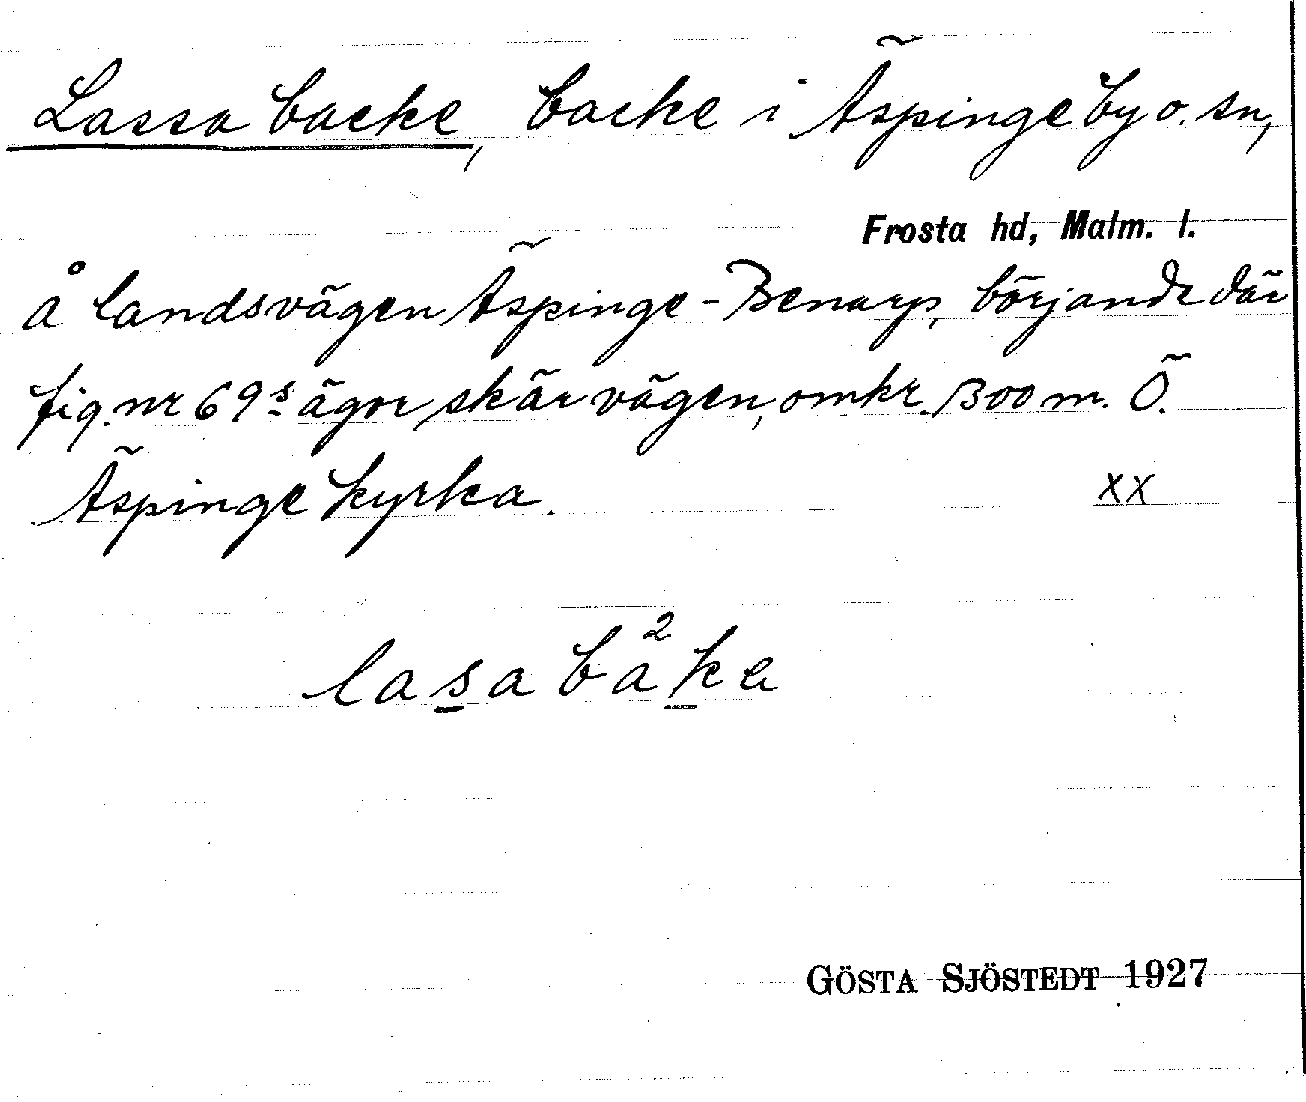 Lassa backe, backe i Äspinge by o. sn,
Frosta hd, Malm. l.
å landsvägen Äspinge - Benarp, börjande där
fig. nr 69s ägor skär vägen, omkr. 1300 m. Ö.
Äspinge kyrka. xx
lasa ba2ka
GÖSTA SJÖSTEDT 1927